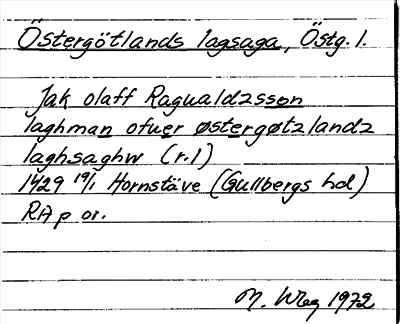 Östergötlands lagsaga, Östg. l.
Jak olaff Ragualdzsson
laghman ofuer østergøtzlandz
laghsaghw (r. 1)
1429 19/1 Hornstäve (Gullbergs hd)
RAp or.
M. 1972